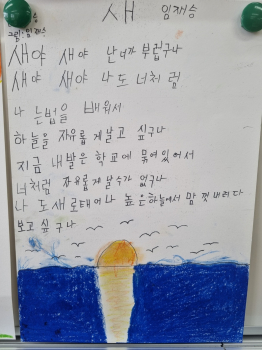 새 임재승
그림: 임재승
새야 새야 난 너가 부럽구나
새야 새야 나도 너처럼
나는 법을 배워서
하늘을 자유롭게 날고 싶구나
지금 내 발은 학교에 묶여 있어서
너처럼 자유롭게 날 수가 없구나
나도 새로 태어나 높은 하늘에서 맘껏 내려다
보고 싶구나